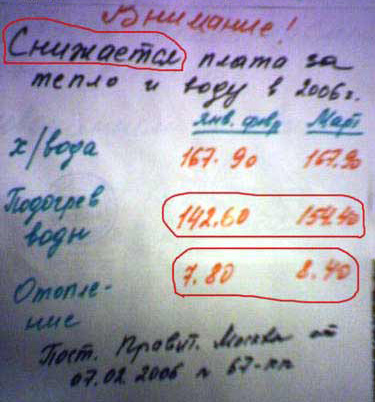 Внимание!
Снижается плата за
тепло и воду в 2006г.
янв. февр Март
х/вода 167.90 167.90
Подогрев
воды 142.60 154.40
Отопле-
ние 7.80 8.40
Пост. Правит. Москвы от
07.02.2006 № 67-пп